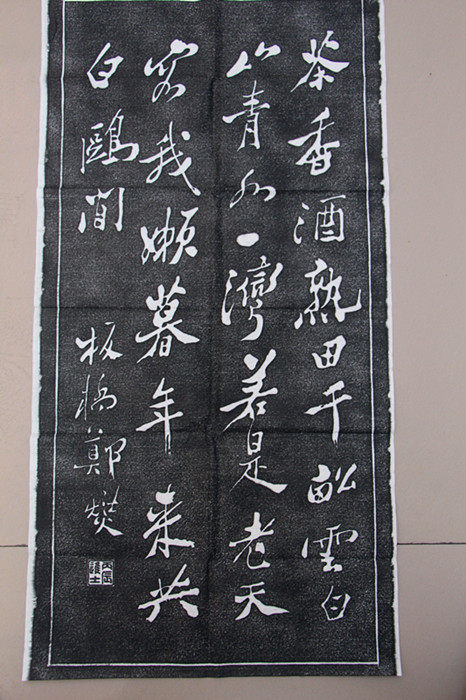 茶香酒熟田千畝雲白
山青水一灣若是老天
容我嬾暮年来共
白鷗閒
板橋鄭燮